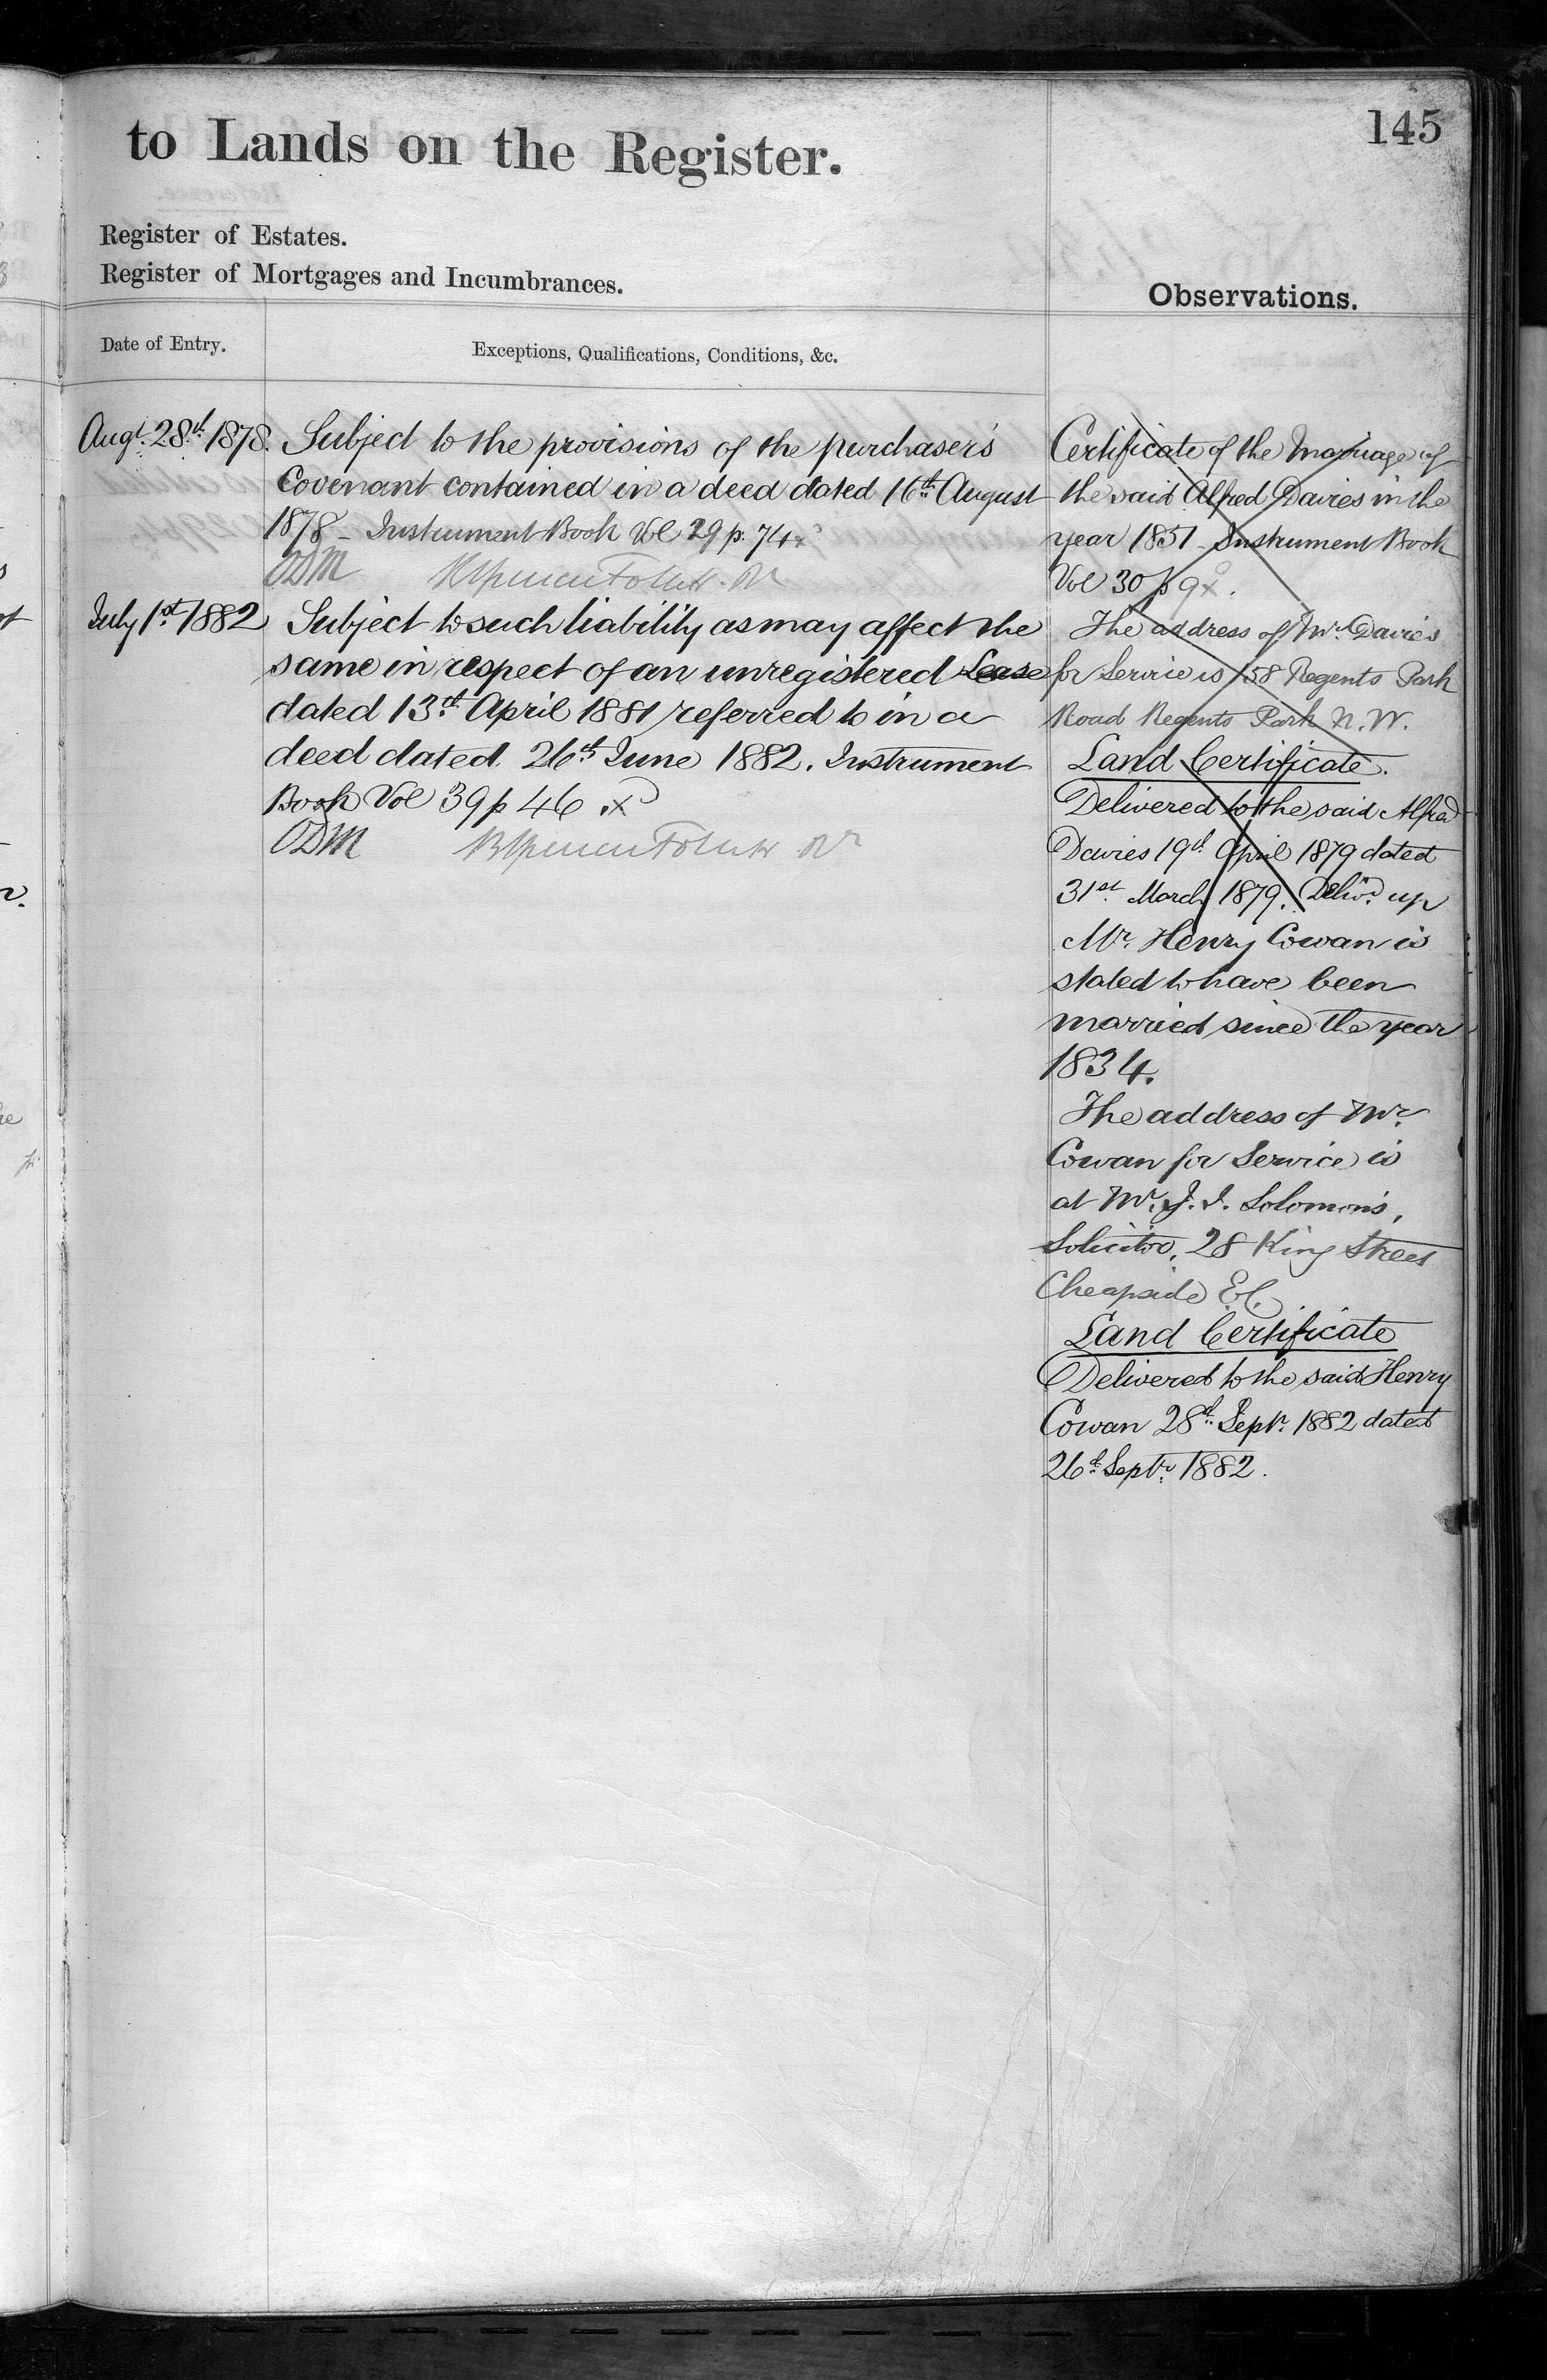 to Lands on the Register.
145
Register of Estates.
Register of Mortgages and Incumbrances.
Observations.
Date of Entry.
Exceptions, Qualifications, Conditions, &c.
Augt. 28th. 1878.
Subject to the provisions of the purchaser's
Covenant contained in a deed dated 16th August
1878 - Instrument Book Vol 29 p. 74 x
ODM
July 1st. 1882
Subject to such liability as may affect the
same in respect of an unregistered Lease
dated 13th. April 1881 referred to in a
deed dated 26th June 1882. Instrument
Book Vol 39 p 46 x
ODM
Certificate of the Marriage of
the said Alfred Davies in the
year 1851 - Instrument Book
Vol 30 p 9 x.
The address of Mr. Davies
for Service is 158 Regents Park
Road Regents Park N.W.
Land Certificate.
Delivered to the said Alfred
Davies 19th April 1879 dated
31st. March 1879. Delivd. up
Mr. Henry Cowan is
stated to have been
married since the year
1834.
The address of Mr.
Cowan for Service is
at Mr. J. I. Solomon's,
Solicitor, 28 King Street
Cheapside E.C.
Land Certificate
Delivered to the said Henry
Cowan 28th. Septr. 1882 dated
26th. Septr. 1882.